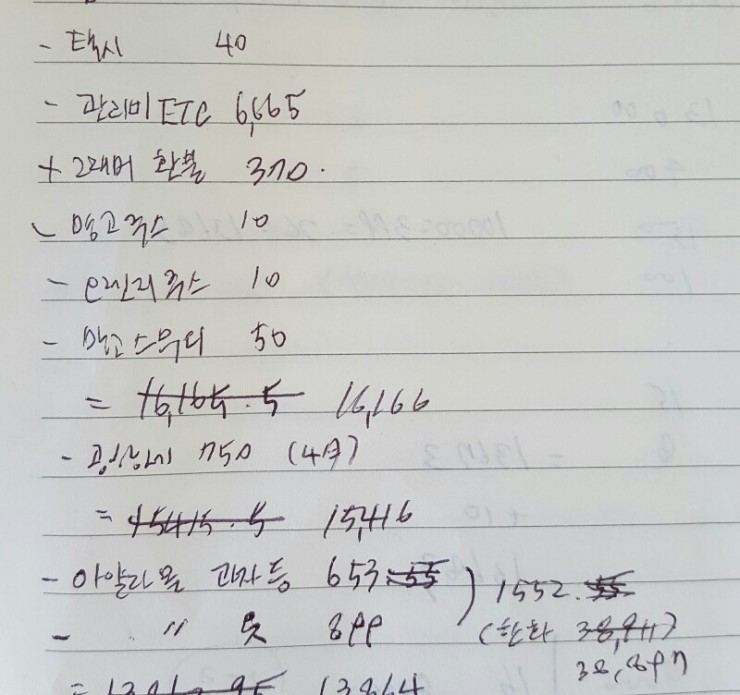 - 택시 40
- 관리비 ETC 6,665
+ 그래머 환불 370.
- 망고쥬스 10
- 오렌지쥬스 10
- 망고스무디 50
= 16,165.5 16,166
- 공상비 750 (4주)
= 15415.5 15,416
- 아얄라몰 과자등 653.55
- 〃 옷 899
) 1552.55
(한화 38,911)
38,897
= 13864